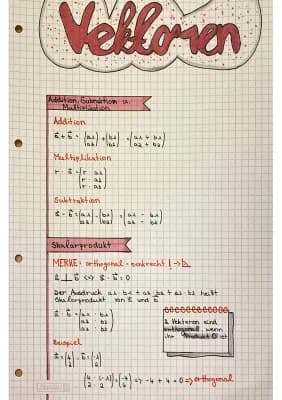 Vektoren
Addition, Subtraktion u.
Multiplikation
Addition
a⃗ + b⃗ = (a1 a2) + (b1 b2) = (a1 + b1 a2 + b2)
Multiplikation
r · a⃗ = (r · a1 r · a2)
Subtraktion
a⃗ - b⃗ = (a1 a2) - (b1 b2) = (a1 - b1 a2 - b2)
Skalarprodukt
MERKE: orthogonal = senkrecht! →
a⃗ ⊥ b⃗ <=> a⃗ · b⃗ = 0
Der Ausdruck a1 · b1 + a2 · b2 + a3 · b3 heißt
Skalarprodukt von a⃗ und b⃗
2 Vektoren sind
orthogonal, wenn
ihr Produkt 0 ist
Beispiel
=> -4 + 4 = 0 => orthogonal